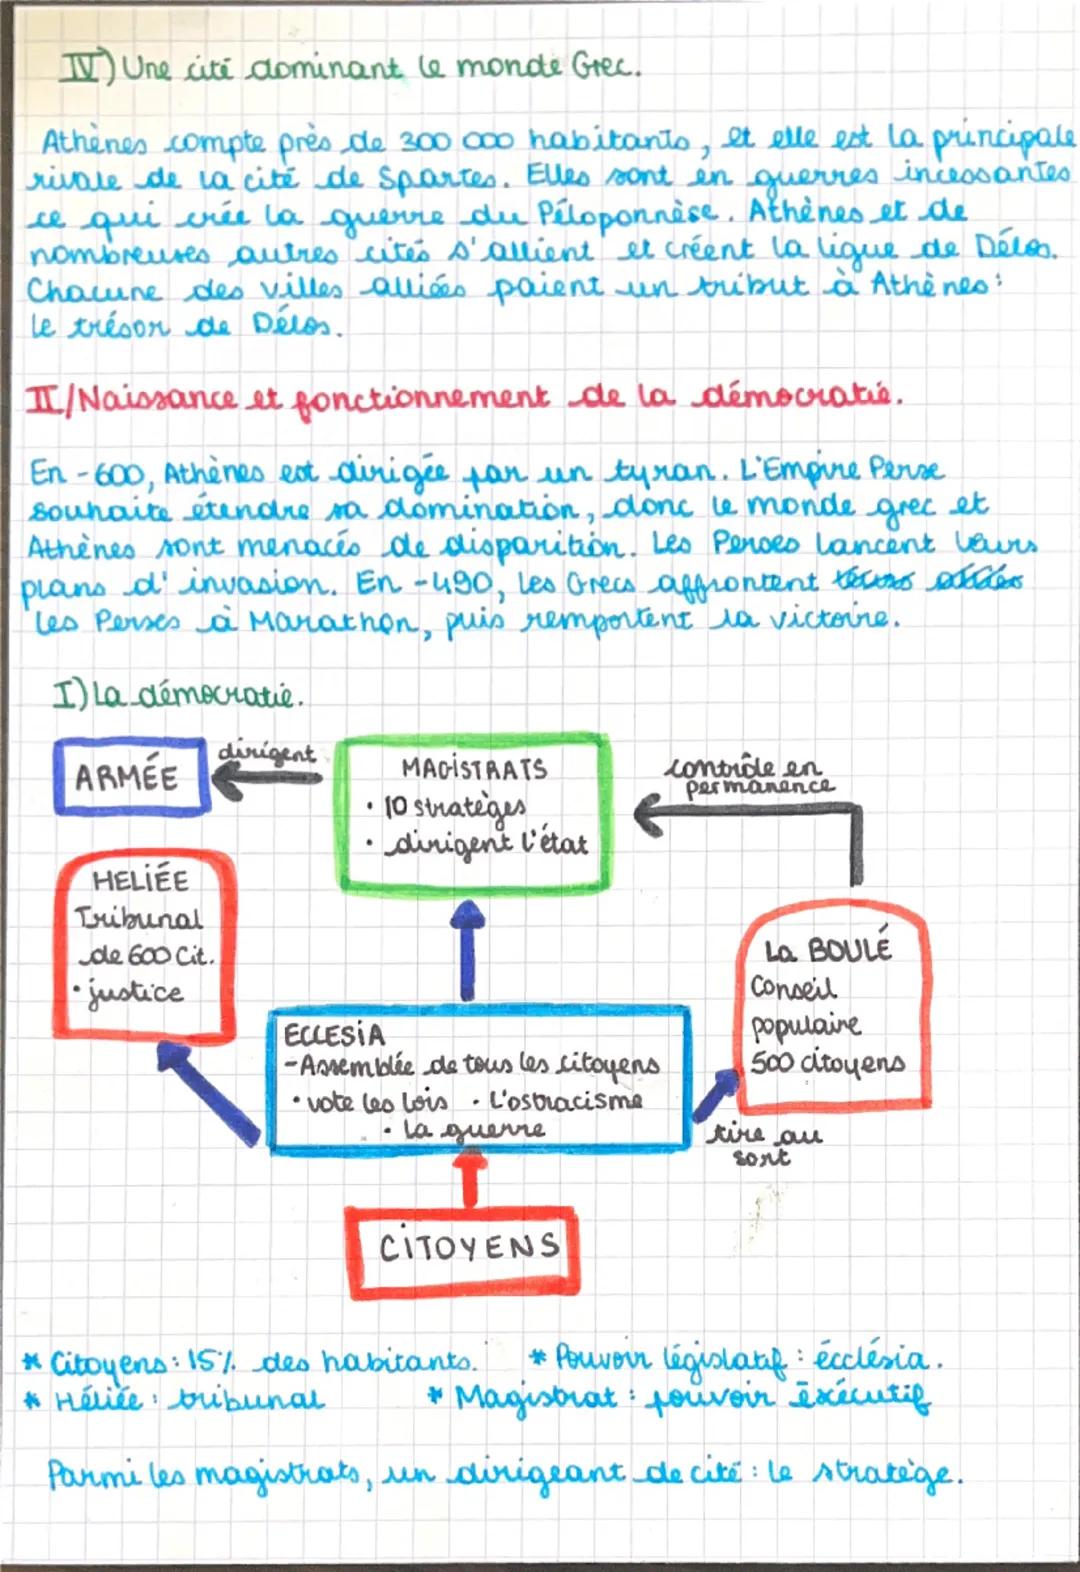 IV) Une cité dominant le monde Grec.
Athènes compte près de 300 000 habitants, et elle est la principale
rivale de la cité de Spartes. Elles sont en guerres incessantes
ce qui crée la guerre du Péloponnèse. Athènes et de
nombreuses autres cités s'allient et créent la ligue de Délos.
Chacune des villes alliées paient un tribut à Athènes :
le trésor de Délos.
II/Naissance et fonctionnement de la démocratie.
En -600, Athènes est dirigée par un tyran. L'Empire Perse
souhaite étendre sa domination, donc le monde grec et
Athènes sont menacés de disparition. Les Perses lancent leurs
plans d'invasion. En -490, les Grecs affrontent
les Perses à Marathon, puis remportent la victoire.
I) La démocratie.
ARMÉE
dirigent
MAGISTRATS
• 10 stratèges
• dirigent l'état
contrôle en
permanence
HELIÉE
Tribunal
de 600 Cit.
• justice
La BOULÉ
Conseil
populaire
500 citoyens
ECCLESIA
- Assemblée de tous les citoyens
• vote les lois • L'ostracisme
• La guerre
tire au
sort
CITOYENS
* Citoyens : 15% des habitants. * Pouvoir législatif : écclésia.
* Héliée : tribunal * Magistrat : pouvoir éxécutif
Parmi les magistrats, un dirigeant de cité : le stratège.